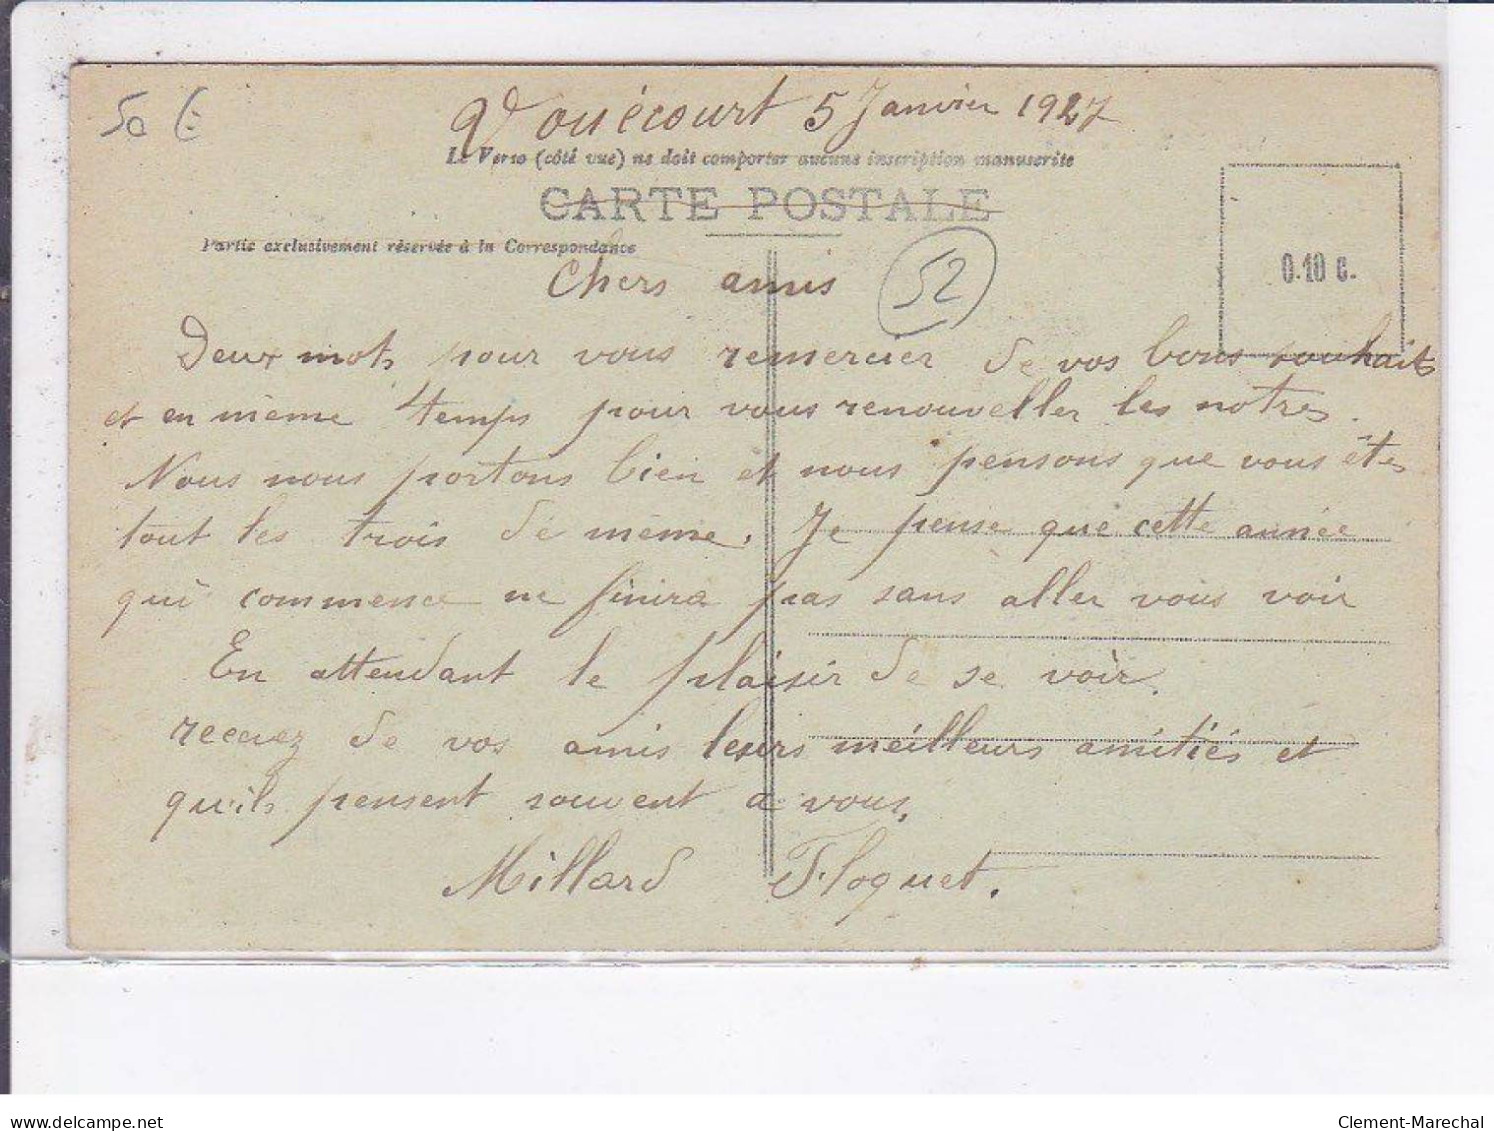 50 €
Vouécourt 5 Janvier 1927
Le Verso (côté vue) ne doit comporter aucune inscription manuscrite
CARTE POSTALE
Partie exclusivement réservée à la Correspondance
0.10 c.
52
Chers amis
Deux mots pour vous remercier de vos bons souhaits
et en même temps pour vous renouveller les notres.
Nous nous portons bien et nous pensons que vous êtes
tout les trois de même. Je pense que cette année
qui commence ne finira pas sans aller vous voir
En attendant le plaisir de se voir.
recevez de vos amis leurs meilleurs amitiés et
qu'ils pensent souvent a vous.
Millard Floquet.
delcampe.net
Clement-Marechal